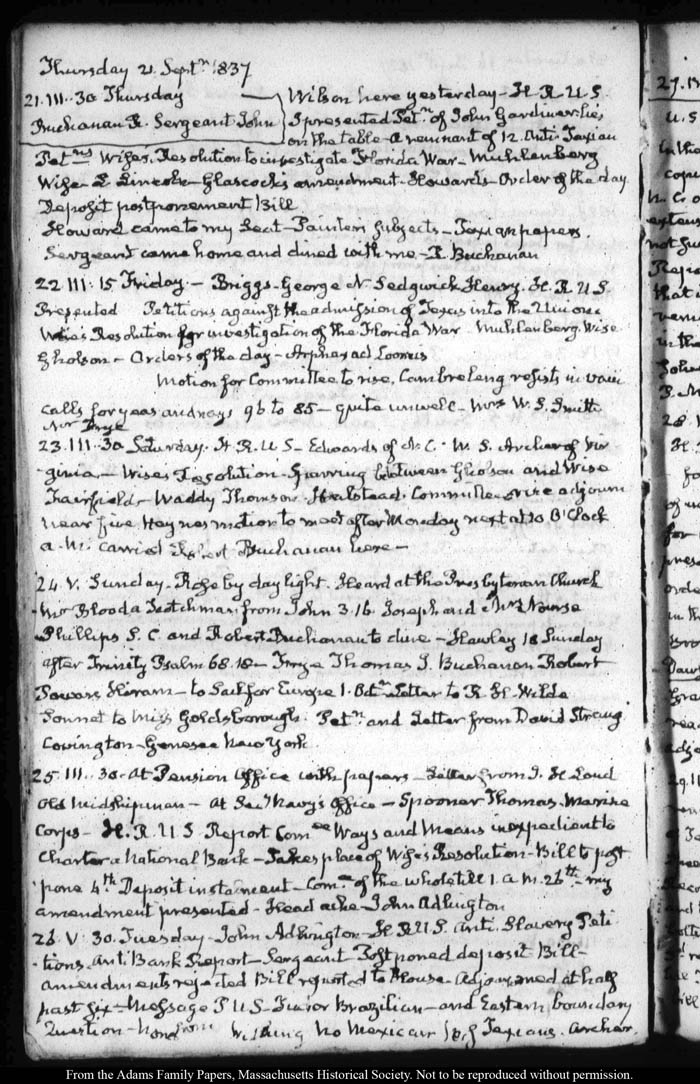 Thursday 21. Septr. 1837
21. III. 30 Thursday
Wilson here yesterday - H. R. U S.
Buchanan R. Sergeant John
I presented Petn. of John Gardiner lies
on the table - a remnant of 12. Anti-Texian
Petns. Wise's Resolution to investigate Florida War - Muhlenberg
Wise L Lincoln - Glascock's amendment - Howards - Order of the day
Deposit postponement Bill
Howard came to my Seat - Painters Subjects - Texian papers.
Sergeant came home and dined with me - R. Buchanan
22. III. 15 Friday. - Briggs - George N. Sedgwick Henry. H. R. U S
Presented Petitions against the admission of Texas into the Union
Wise's Resolution for investigation of the Florida War - Muhlenberg. Wise
Gholson - Orders of the day - Arphaxad Loomis
Motion for Committee to rise, Cambreleng resists in vain
calls for yeas and nays 96 to 85 - quite unwell - Mrs. W. S. Smith
Mr. Frye
23. III. 30 Saturday. H. R. U S - Edwards of N. C. W. S. Archer of Vir
ginia - Wise's Resolution - Sparring between Gholson and Wise
Fairfield - Waddy Thomson - Halstead - Committee rise adjourn
near five. Haynes motion to meet after Monday next at 10 O'Clock
a. M. carried Robert Buchanan here -
24. V. Sunday. Rose by day light. Heard at the Presbyterian Church
Mr. Blood a Scotchman from John 3. 16. Joseph and Mrs. Nourse
Phillips S. C. and Robert Buchanan to dine - Hawley 18 Sunday
after Trinity Psalm 68. 18 - Frye Thomas J. Buchanan Robert
Powers Hiram - to Sail for Europe 1. Octr. Letter to R. H. Wilde
Sonnet to Miss Goldsborough. Petn. and Letter from David Strang
Covington - Genesee New York.
25. III. 30. At Pension Office with papers - Letter from J. H Loud
Old Midshipman - At Secy. Navy's Office - Spooner Thomas. Marine
Corps - H. R. U S. Report Comee. Ways and Means inexpedient to
Charter a National Bank - Takes place of Wise's Resolution - Bill to post
pone 4th. Deposit instalment - Comee. of the whole till 1. a. m. 26th. - my
amendment presented - Head ache - John Adlington
26. V. 30. Tuesday - John Adlington - H. R. U S. Anti-Slavery Peti
tions. Anti Bank Report - Sergeant Postponed deposit Bill -
amendments rejected Bill reported to House - Adjourned at half
past six - Message P. U S - Junior Brazilian - and Eastern boundary
Question - no Mexican Texians. Archer.
27.
U. S
From the Adams Family Papers, Massachusetts Historical Society. Not to be reproduced without permission.